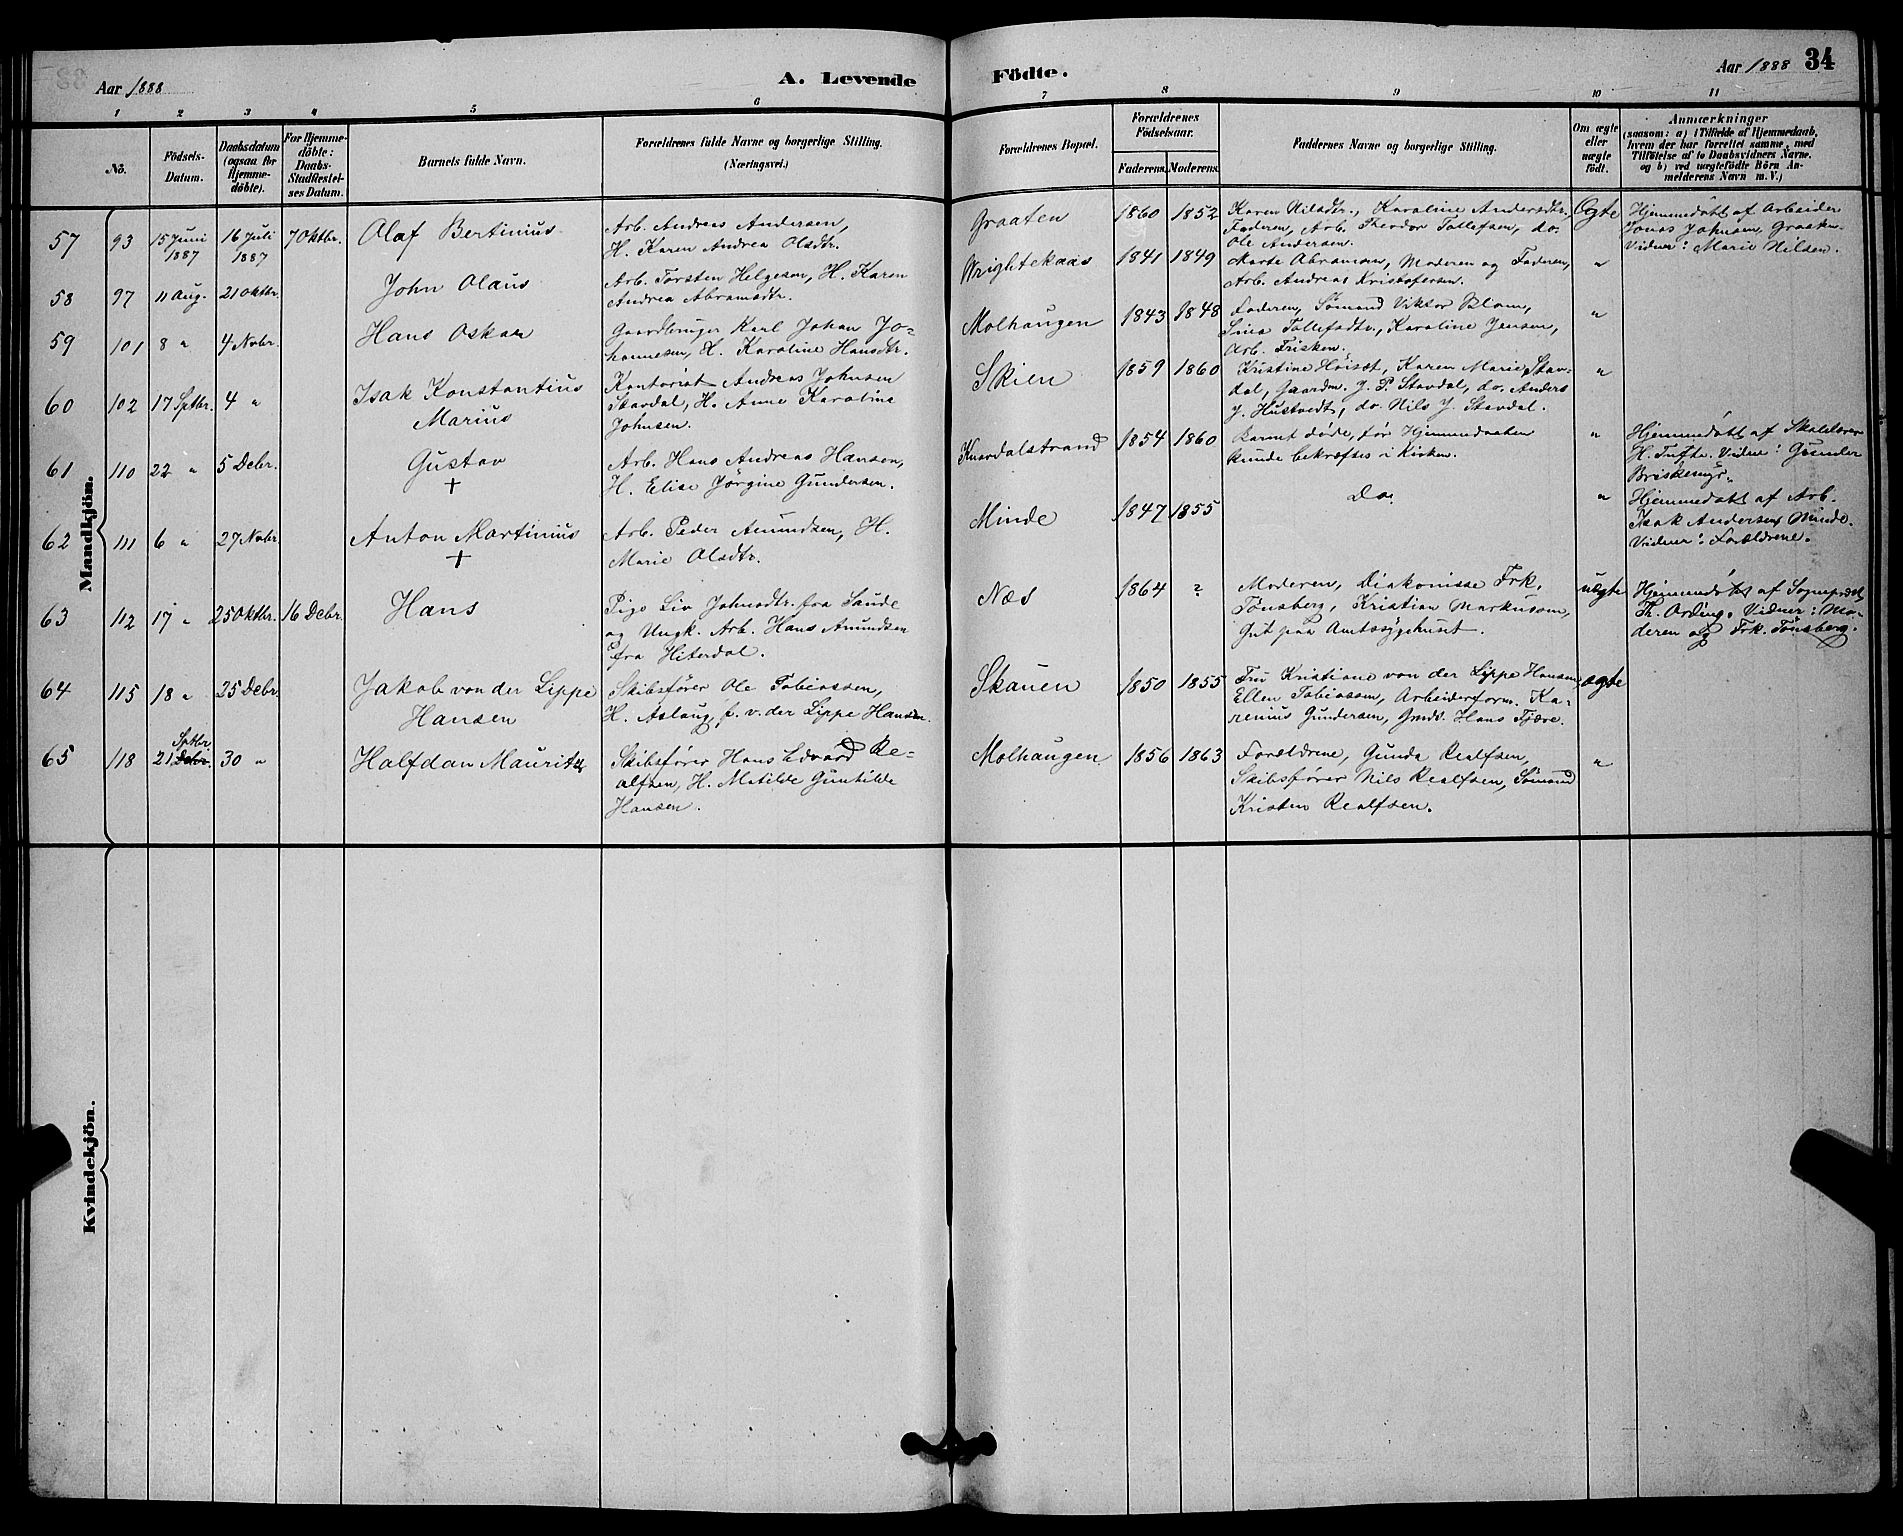 Aar 1888
A. Levende
Födte.
Aar 1888 34
1 2 3 4 5 6 7 8 9 10 11
No.
Födsels-
Datum.
Daabsdatum
(ogsaa for
Hjemme-
döbte).
For Hjemme-
döbte:
Daabs-
Stadfæstel-
ses Datum.
Barnets fulde Navn.
Forældrenes fulde Navne og borgerlige Stilling.
(Næringsvei.)
Forældrenes Bopæl.
Forældrenes
Födselsaar.
Faderens. Moderens.
Faddernes Navne og borgerlige Stilling.
Om ægte
eller
uægte
födt.
Anmærkninger
(saasom: a) i Tilfælde af Hjemmedaab,
hvem der har forrettet samme, med
Tilföielse af to Daabsvidners Navne,
og b) ved uægtefödte Börn An-
melderens Navn m. V.)
Mandkjön.
57 93 15 Juni
1887
16 Juli
1887
7 Oktbr.
Olaf Bertinius
Arb. Andreas Andersen,
H. Karen Andrea Olsdtr.
Graaten 1860 1852
Karen Nilsdtr., Karoline Andersdtr.,
Faderen, Arb. Theodor Tollefsen, do.
Ole Andersen.
Ægte
Hjemmedöbt af Arbeider
Jonas Johnsen, Graaten.
Vidner: Marie Nilsen.
58 97 11 Aug. 21 Oktbr.
John Olaus
Arb. Torsten Helgesen, H. Karen
Andrea Abramsdtr.
Wrightekaas 1841 1849
Marte Abramsen, Moderen og Faderen,
Arb. Andreas Kristofersen.
"
59 101 8 " 4 Novbr.
Hans Oskar
Gaardbruger Karl Johan Jo-
hannesen, H. Karoline Hansdtr.
Molhaugen 1843 1848
Faderen, Sömand Viktor Blom,
Sina Tollefsdtr., Karoline Jensen,
Arb. Frisken.
"
60 102 17 Sptbr. 4 "
Isak Konstantius
Marius
Kontorist Andreas Johnsen
Stavdal, H. Anne Karoline
Johnsen.
Skien 1859 1860
Kristine Höisæt, Karen Marie Stav-
dal, Gaardm. J. P. Stavdal, do. Anders
J. Hustvedt, do. Nils J. Stavdal.
"
61 110 22 " 5 Debr.
Gustav
+
Arb. Hans Andreas Hansen,
H. Elise Jörgine Gundersen.
Knardalstrand 1854 1860
Barnet döde, för Hjemmedaaben
kunde bekræftes i Kirken.
"
Hjemmedöbt af Skolelærer
H. Tufte. Vidne: Gunder
Briskemyr.
62 111 6 " 27 Novbr.
Anton Martinius
+
Arb. Peder Amundsen, H.
Marie Olsdtr.
Minde 1847 1855
Do.
"
Hjemmedöbt af Arb.
Isak Andersen Minde.
Vidner: Forældrene.
63 112 17 " 25 Oktbr. 16 Debr.
Hans
Pige Liv Johnsdtr. fra Saude
og Ungk. Arb. Hans Amundsen
fra Hiterdal.
Næs 1864 ?
Moderen, Diakonisse Frk.
Tönsberg, Kristian Markussen,
Gut paa Amtssygehuset.
uægte
Hjemmedöbt af Sognepræst
Th. Arding. Vidner: Mo-
deren og Frk. Tönsberg.
64 115 18 " 25 Debr.
Jakob von der Lippe
Hansen
Skibsförer Ole Tobiassen,
H. Aslaug, f. v. der Lippe Hansen.
Skauen 1850 1855
Fru Kristiane von der Lippe Hansen,
Ellen Tobiassen, Arbeiderform. Ka-
renius Gundersen, Grdsk. Hans Fjære.
ægte
65 118 21 Sptbr
Debr. 30 "
Halfdan Mauritz
Skibsförer Hans Edvard Re-
alfsen, H. Matilde Guntilde
Hansen.
Molhaugen 1856 1863
Forældrene, Gunda Realfsen,
Skibsförer Nils Realfsen, Sömand
Kristen Realfsen.
"
Kvindekjön.